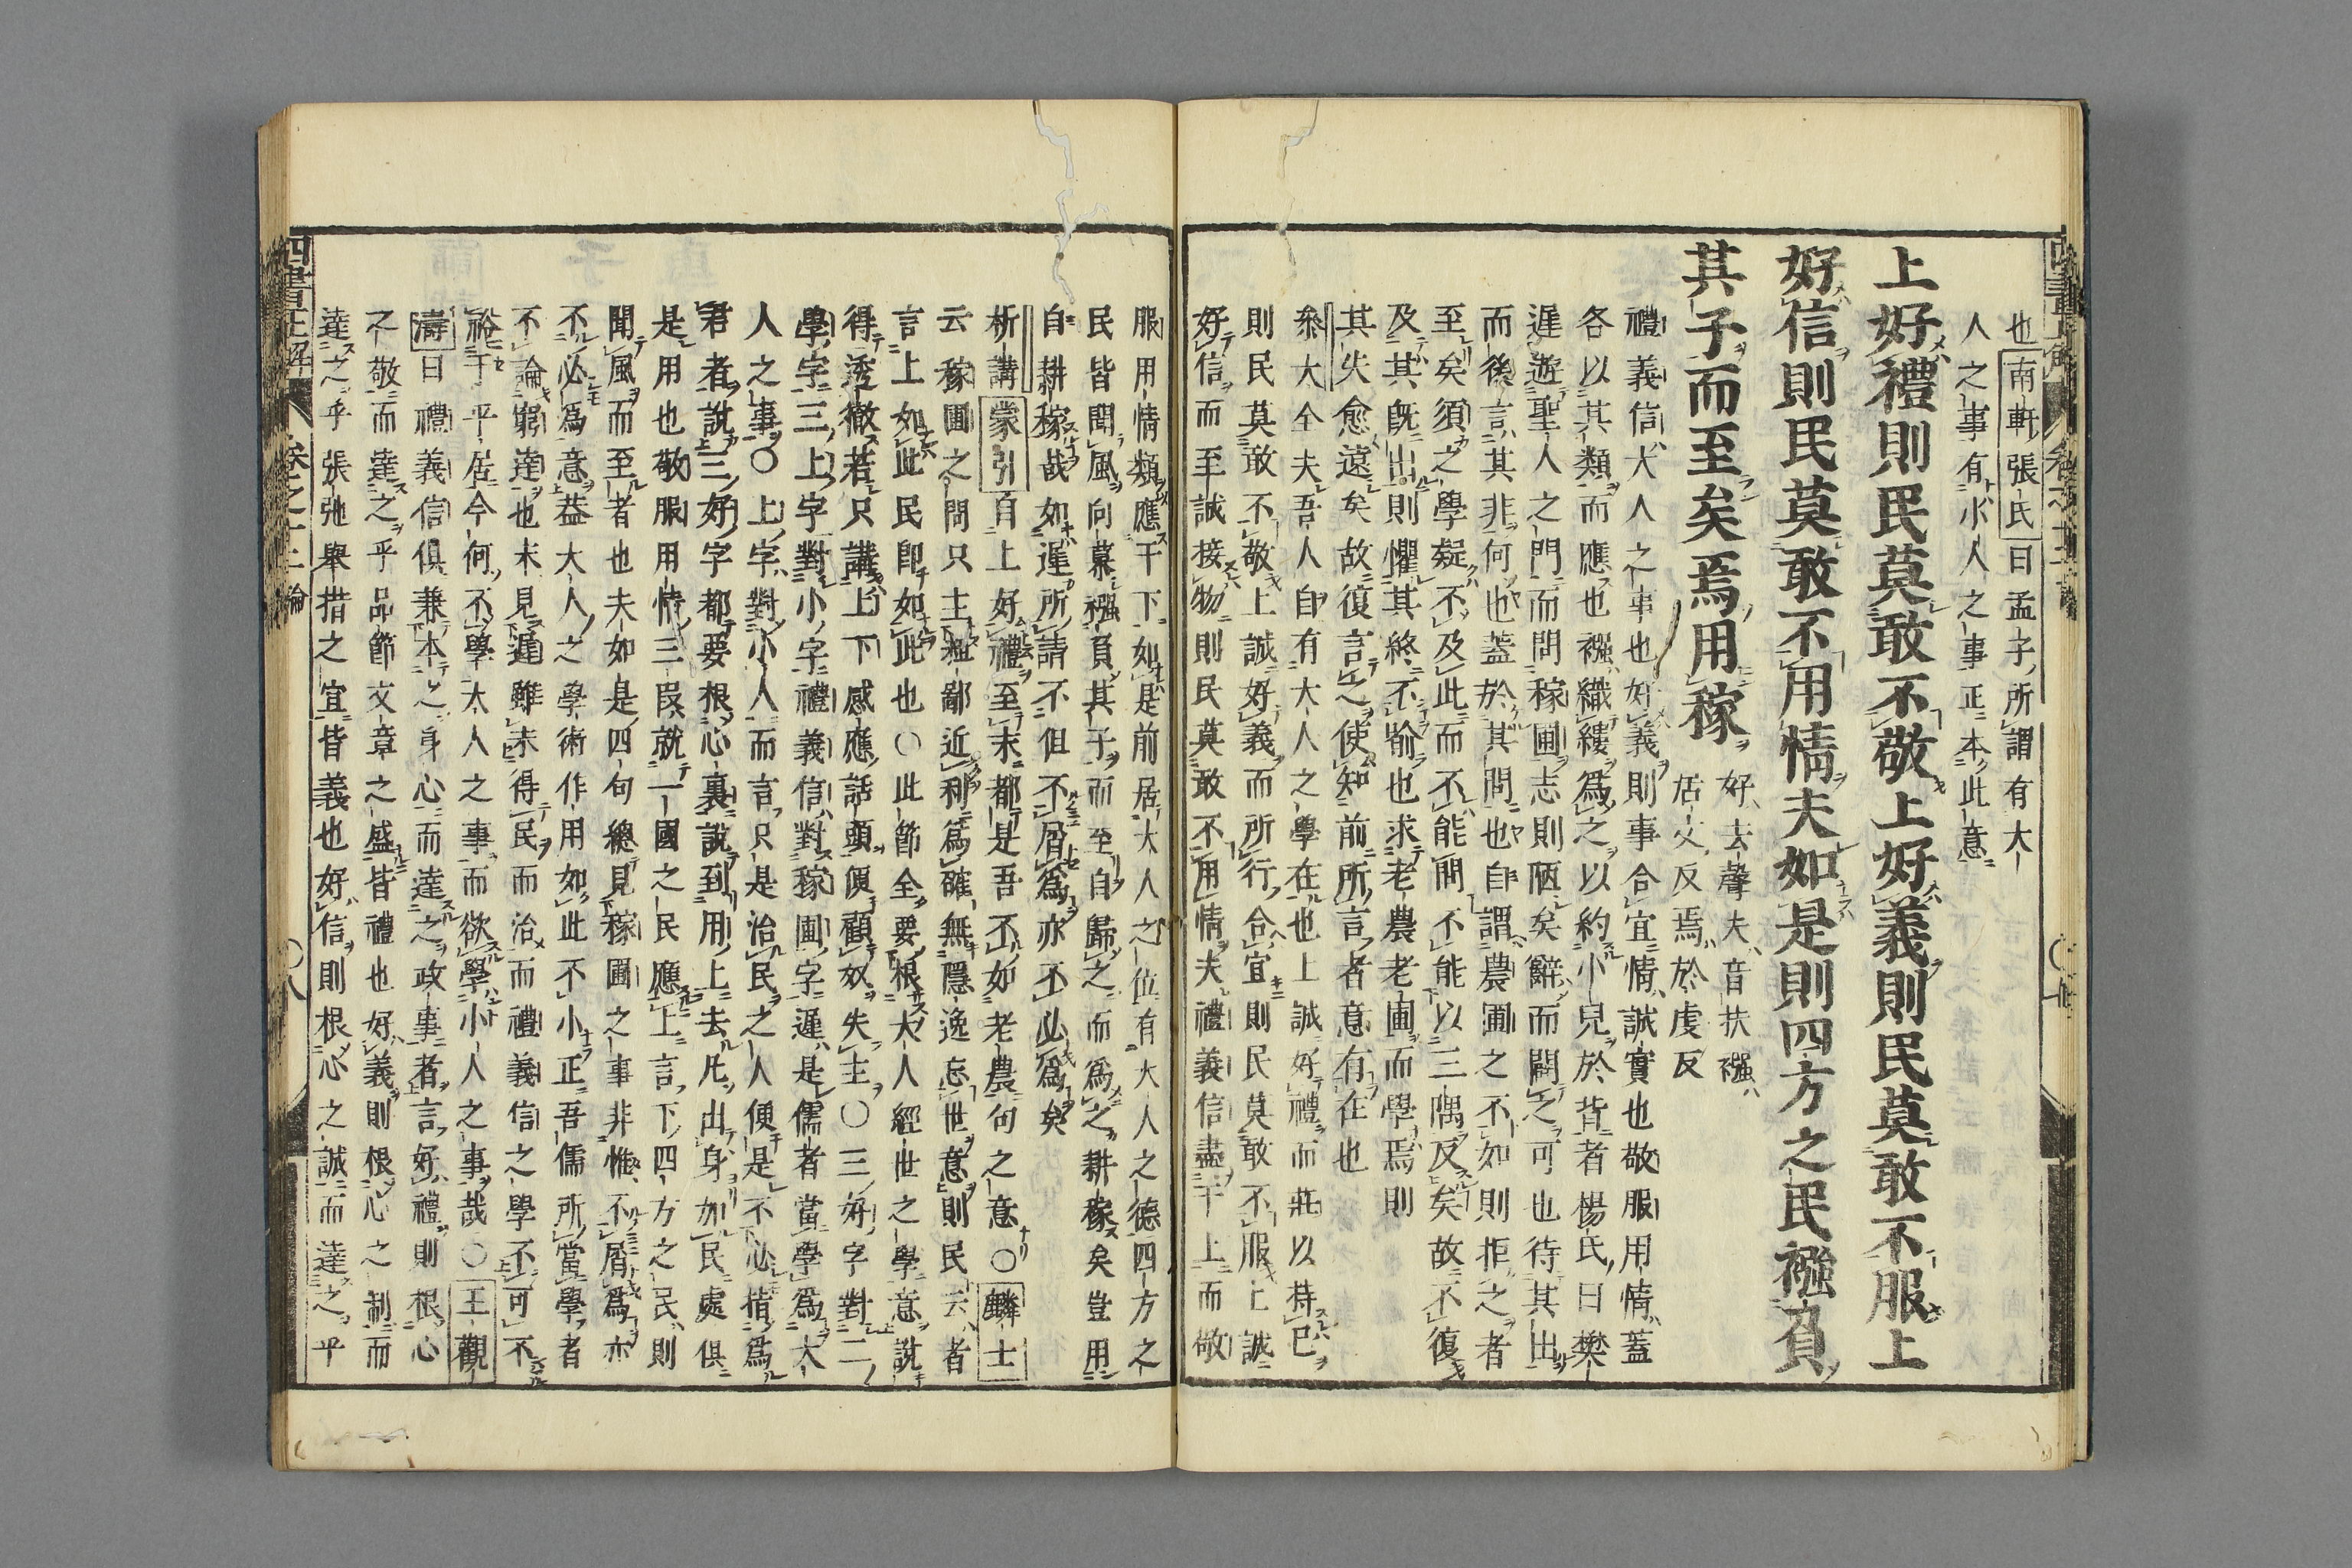 也南軒張氏曰孟子所謂有大
人之事有小人之事正本此意
上好禮則民莫敢不敬上好義則民莫敢不服上
好信則民莫敢不用情夫如是則四方之民襁負
其子而至矣焉用稼
好去聲夫音扶襁
居丈反焉於虔反
禮義信大人之事也好義則事合宜情誠實也敬服用情蓋
各以其類而應也襁織縷爲之以約小兒於背者楊氏曰樊
遲遊聖人之門而問稼圃志則陋矣辭而闢之可也待其出
而後言其非何也蓋於其問也自謂農圃之不如則拒之者
至矣須之學疑不及此而不能問不能以三隅反矣故不復
及其旣出則懼其終不喻也求老農老圃而學焉則
其失愈遠矣故復言之使知前所言者意有在也
大全夫吾人自有大人之學在也上誠好禮而莊以持已
則民莫敢不敬上誠好義而所行合宜則民莫敢不服上誠
好信而至誠接物則民莫敢不用情夫禮義信盡于上而敬
服用情類應于下如是前居大人之位有大人之德四方之
民皆聞風向慕襁負其子而至自歸之而爲之耕稼矣豈用
自耕稼哉如遲所請不但不屑爲亦不必爲矣
析講蒙引自上好禮至末都是吾不如老農句之意〇麟士
云稼圃之問只主粗鄙近利爲確無隱逸忘世意則民去者
言上如此民卽如此也〇此節全要根大人經世之學意說
得透徹若只講上下感應話頭便顧奴失主〇三好字對二
學字三上字對小字禮義信對稼圃字遲是儒者當學爲大
人之事〇上字對小人而言只是治民之人便是不必指爲
君者說三好字都要根心裏說到用上去凡出身如民處俱
是用也敬服用情三段就一國之民應上言下四方之民則
聞風而至者也夫如是四句總見稼圃之事非惟不屑爲亦
不必爲意葢大人之學術作用如此不小正吾儒所當學者
不論窮達也未見遲雖未得民而治而禮義信之學不可不
裕于平居今何不學大人之事而欲學小人之事哉〇王觀
濤曰禮義信俱兼本之身心而達之政事者言好禮則根心
之敬而達之乎品節文章之盛皆禮也好義則根心之制而
達之乎張弛舉措之宜皆義也好信則根心之誠而達之乎
四書正解
卷之十三論
〇八